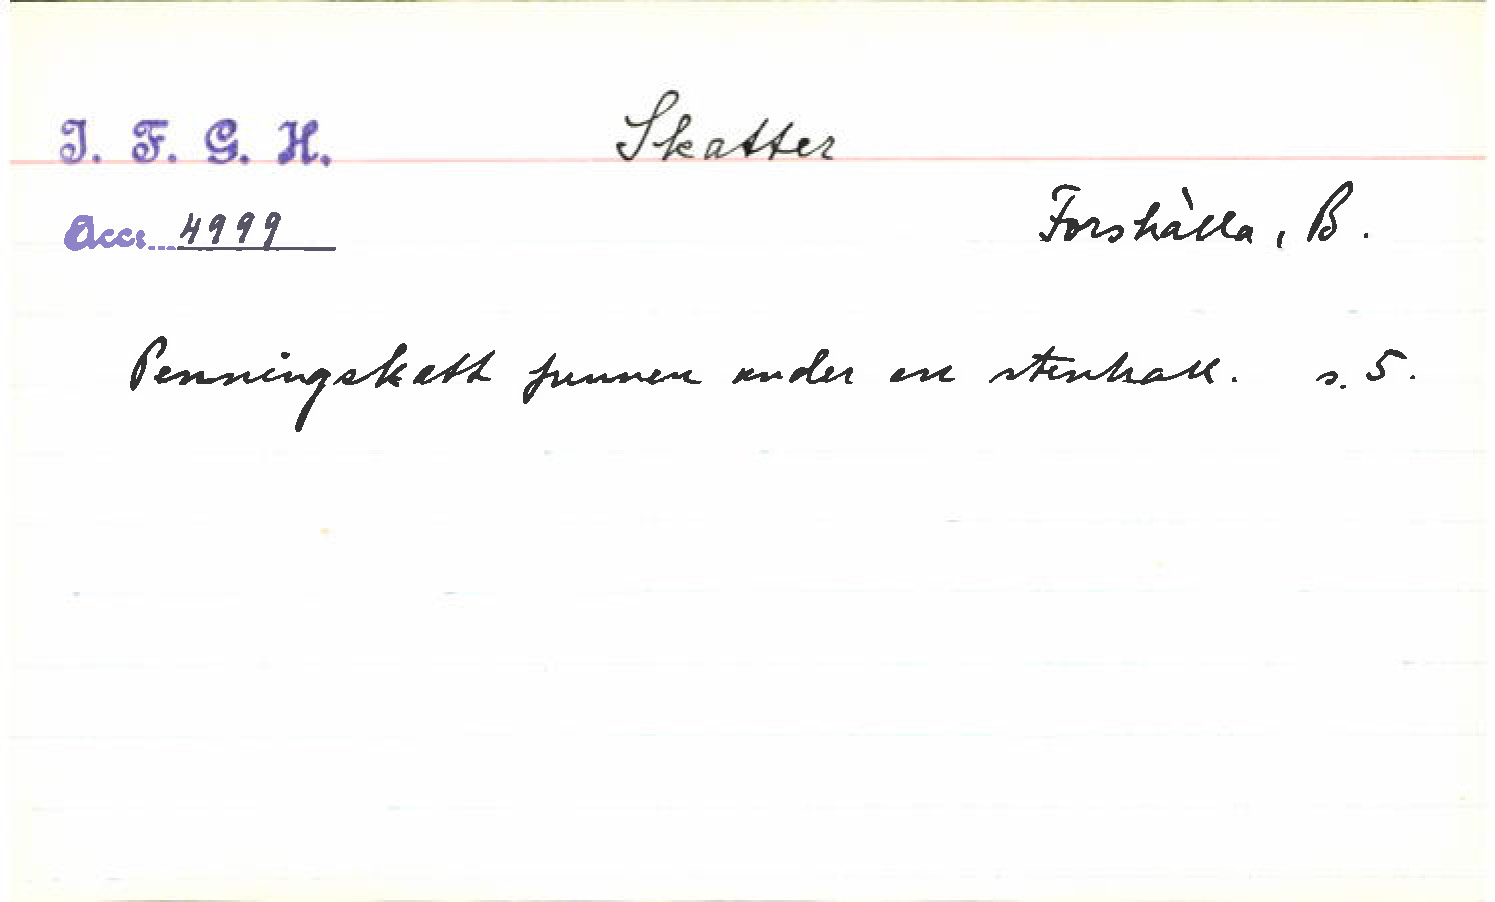 I. F. G. H. Skatter
Acc: 4999 Forshälla, B.
Penningskatt funnen under en stenhall. s. 5.